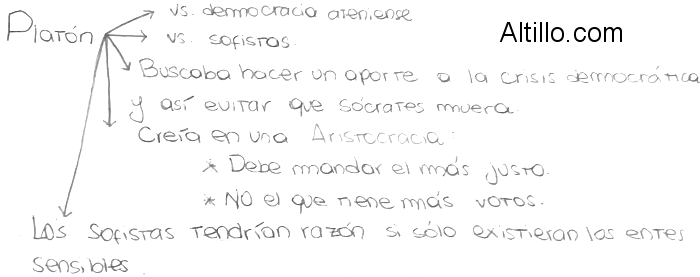 Platón
vs. democracia ateniense
vs. sofistas.
Altillo.com
Buscaba hacer un aporte a la crisis democrática
y así evitar que sócrates muera.
Creía en una Aristocracia:
* Debe mandar el más justo.
* NO el que tiene más votos.
Los sofistas tendrían razón si sólo existieran los entes
sensibles.